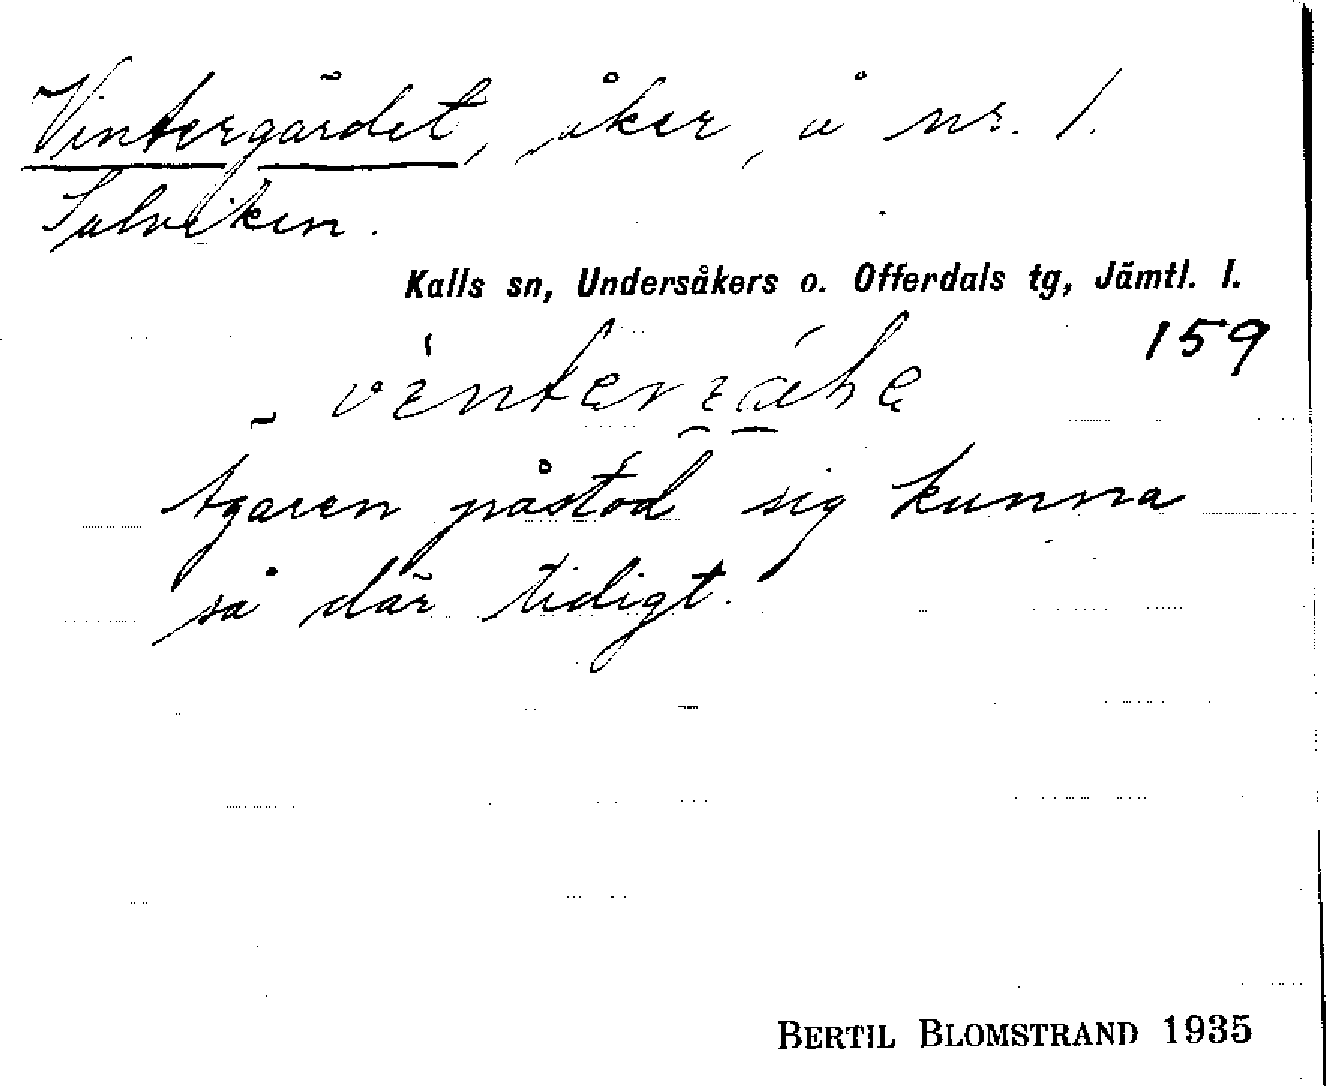 Vintergärdet, åker, å nr. 1.
Sulviken.
Kalls sn, Undersåkers o. Offerdals tg, Jämtl. l.
159
Ägaren påstod sig kunna
så där tidigt.
BERTIL BLOMSTRAND 1935